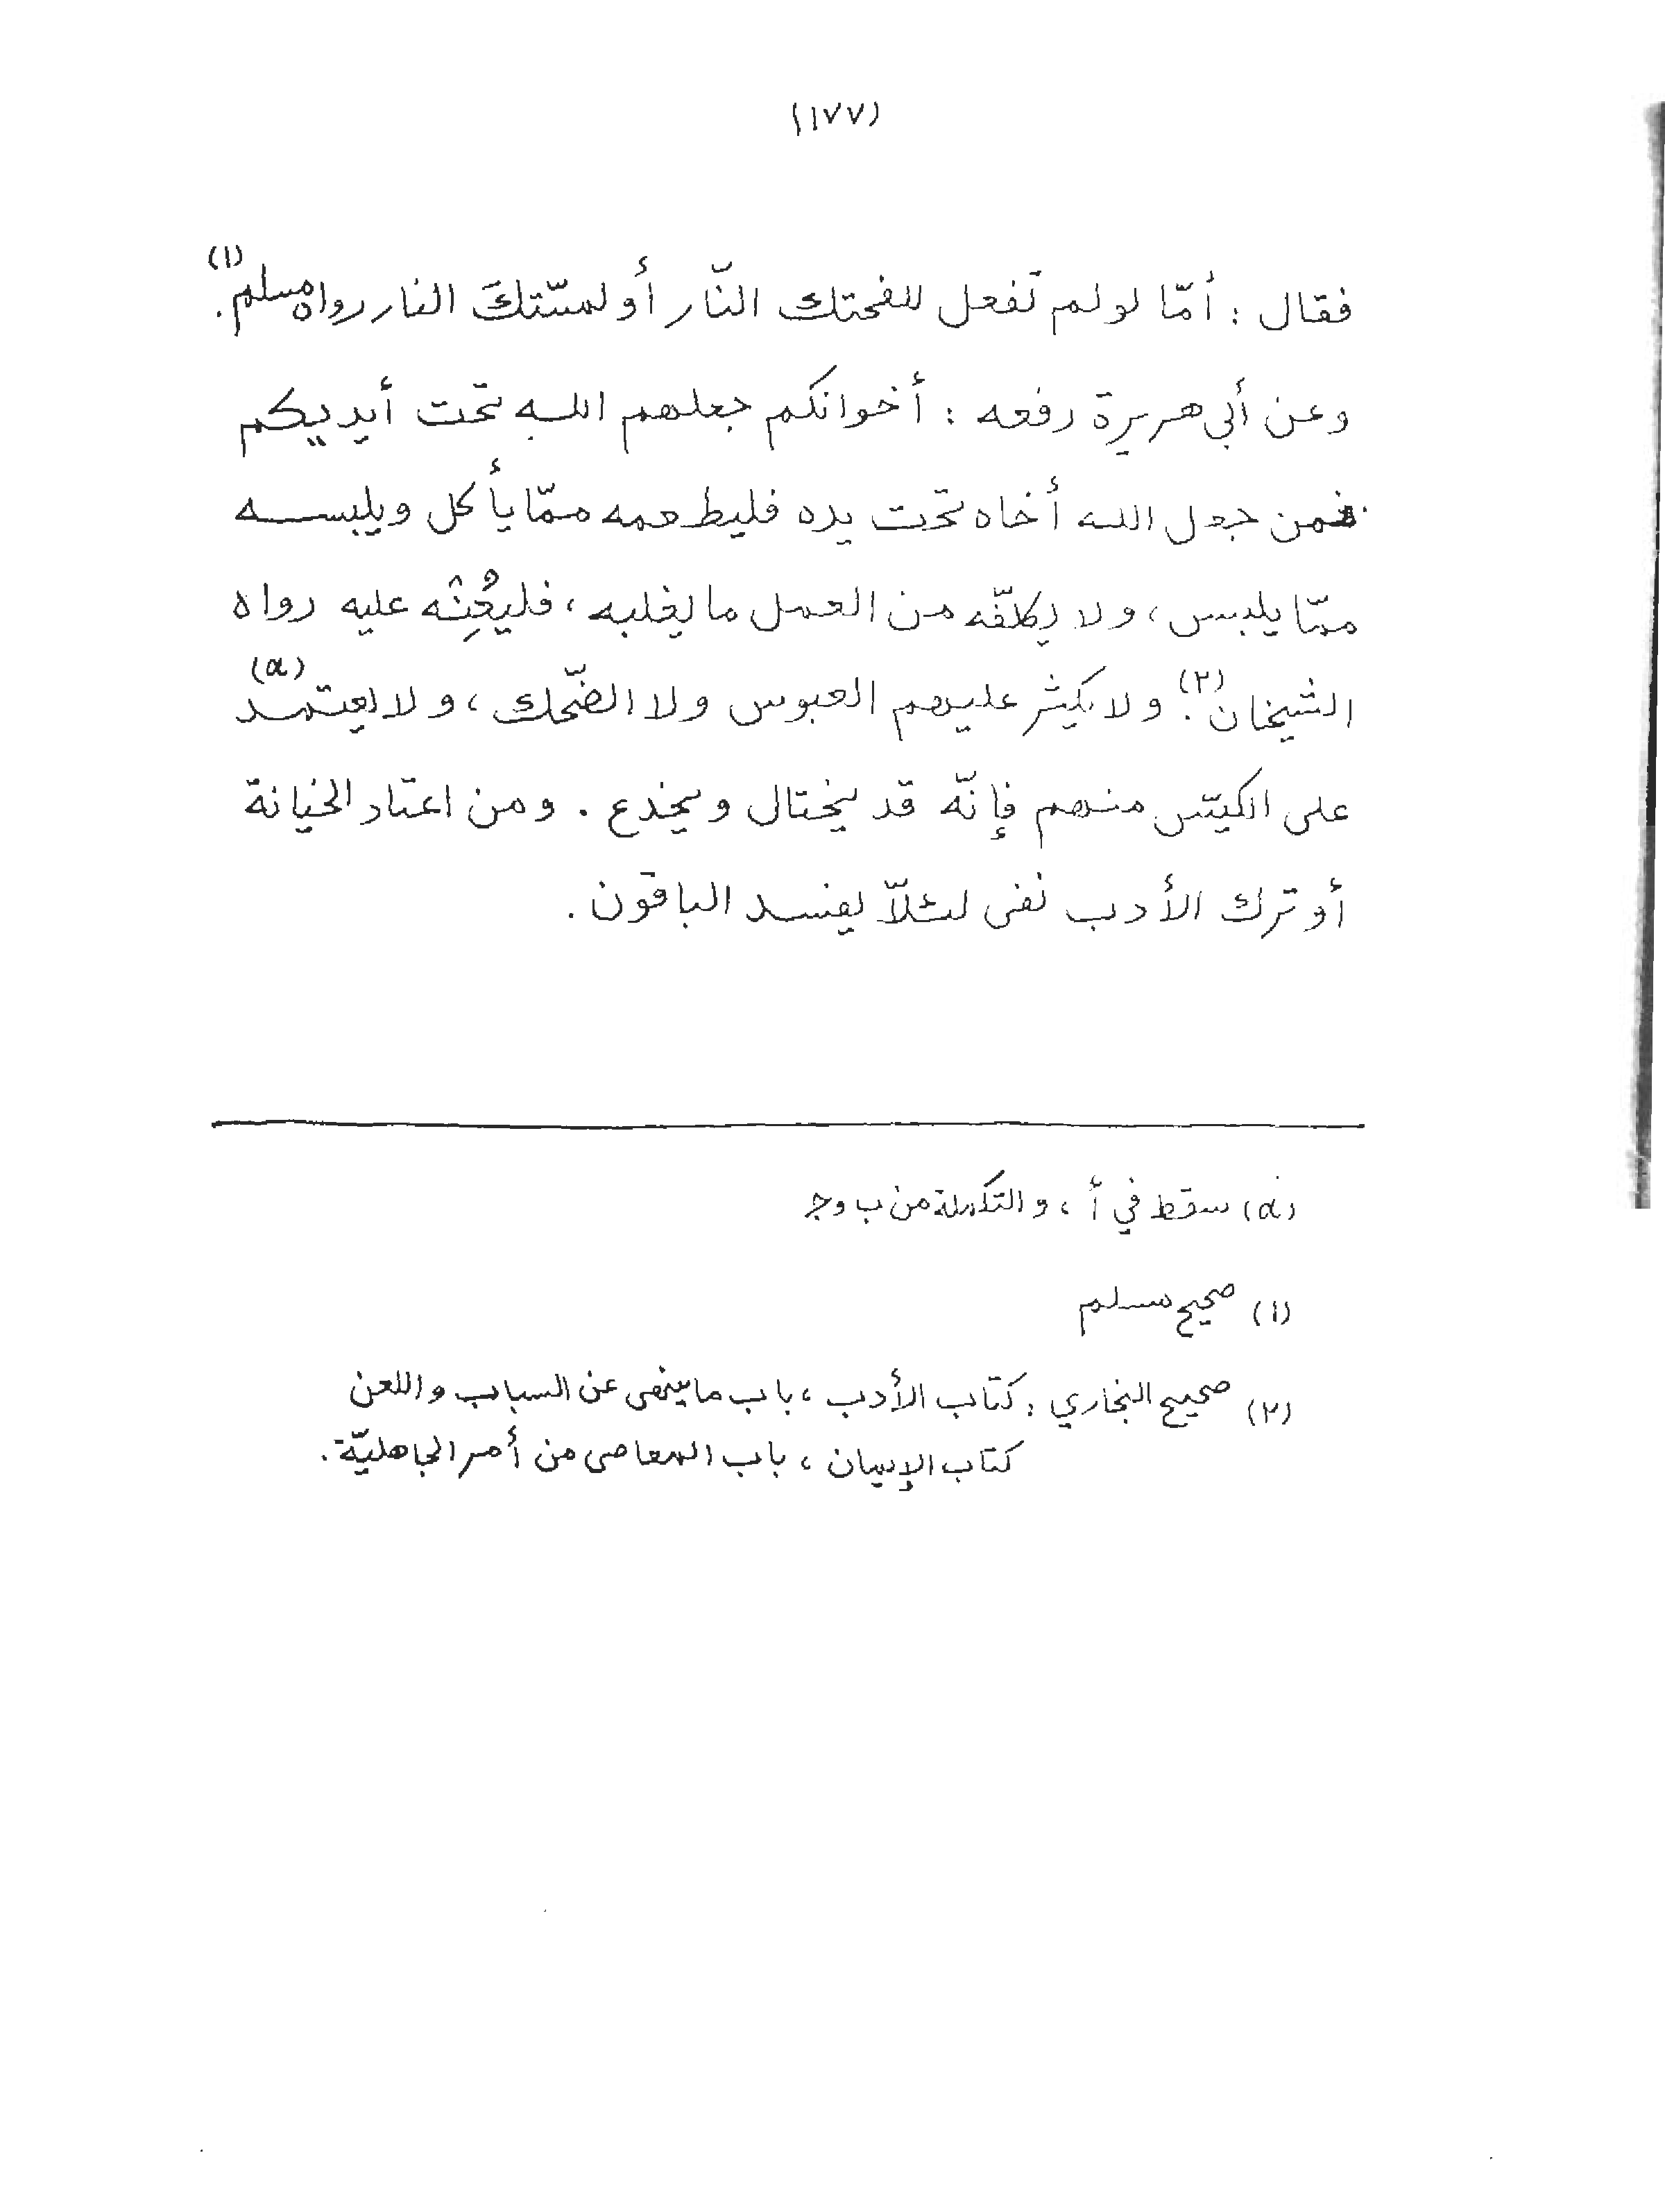 (١٧٧)
فقال : أمّا لو لم تفعل للفحتك النّار أو لمسّتكَ النار رواه مسلم(١).
وعن أبي هريرة رفعه : أخوانكم جعلهم الله تحت أيديكم
فمن جعل الله أخاه تحت يده فليطعمه ممّا يأكل ويلبسه
ممّا يلبس ، ولا يكلفّه من العمل ما يغلبه ، فليُعِنْه عليه رواه
الشيخان(٢). ولا يكثر عليهم العبوس ولا الضّحك ، ولا يعتمد(a)
على الكيّس منهم فإنّه قد يختال ويخدع . ومن اعتاد الخيانة
أو ترك الأدب نفى لئلاّ يفسد الباقون .
(a) سقط في أ ، والتكملة من ب وجـ
(١) صحيح مسلم
(٢) صحيح البخاري : كتاب الأدب ، باب ما ينهى عن السباب واللعن
كتاب الإيمان ، باب المعاصى من أمر الجاهليّة .